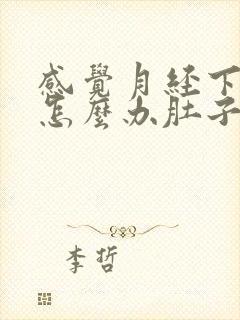 感覺月经下
怎麼办肚子
李哲